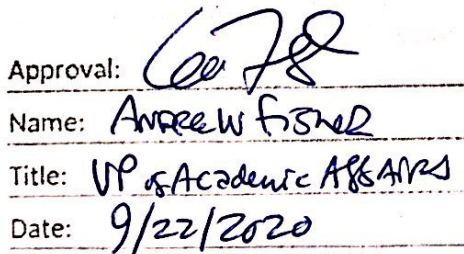 Approval:
Name: ANDREW FISHER
Title: VP of Academic AFFAIRS
Date: 9/22/2020